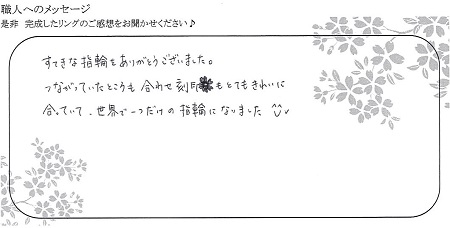 職人へのメッセージ
是非 完成したリングのご感想をお聞かせください♪
すてきな指輪をありがとうございました。
つながっていたところも 合わせ刻印もとてもきれいに
合っていて、世界で一つだけの指輪になりました